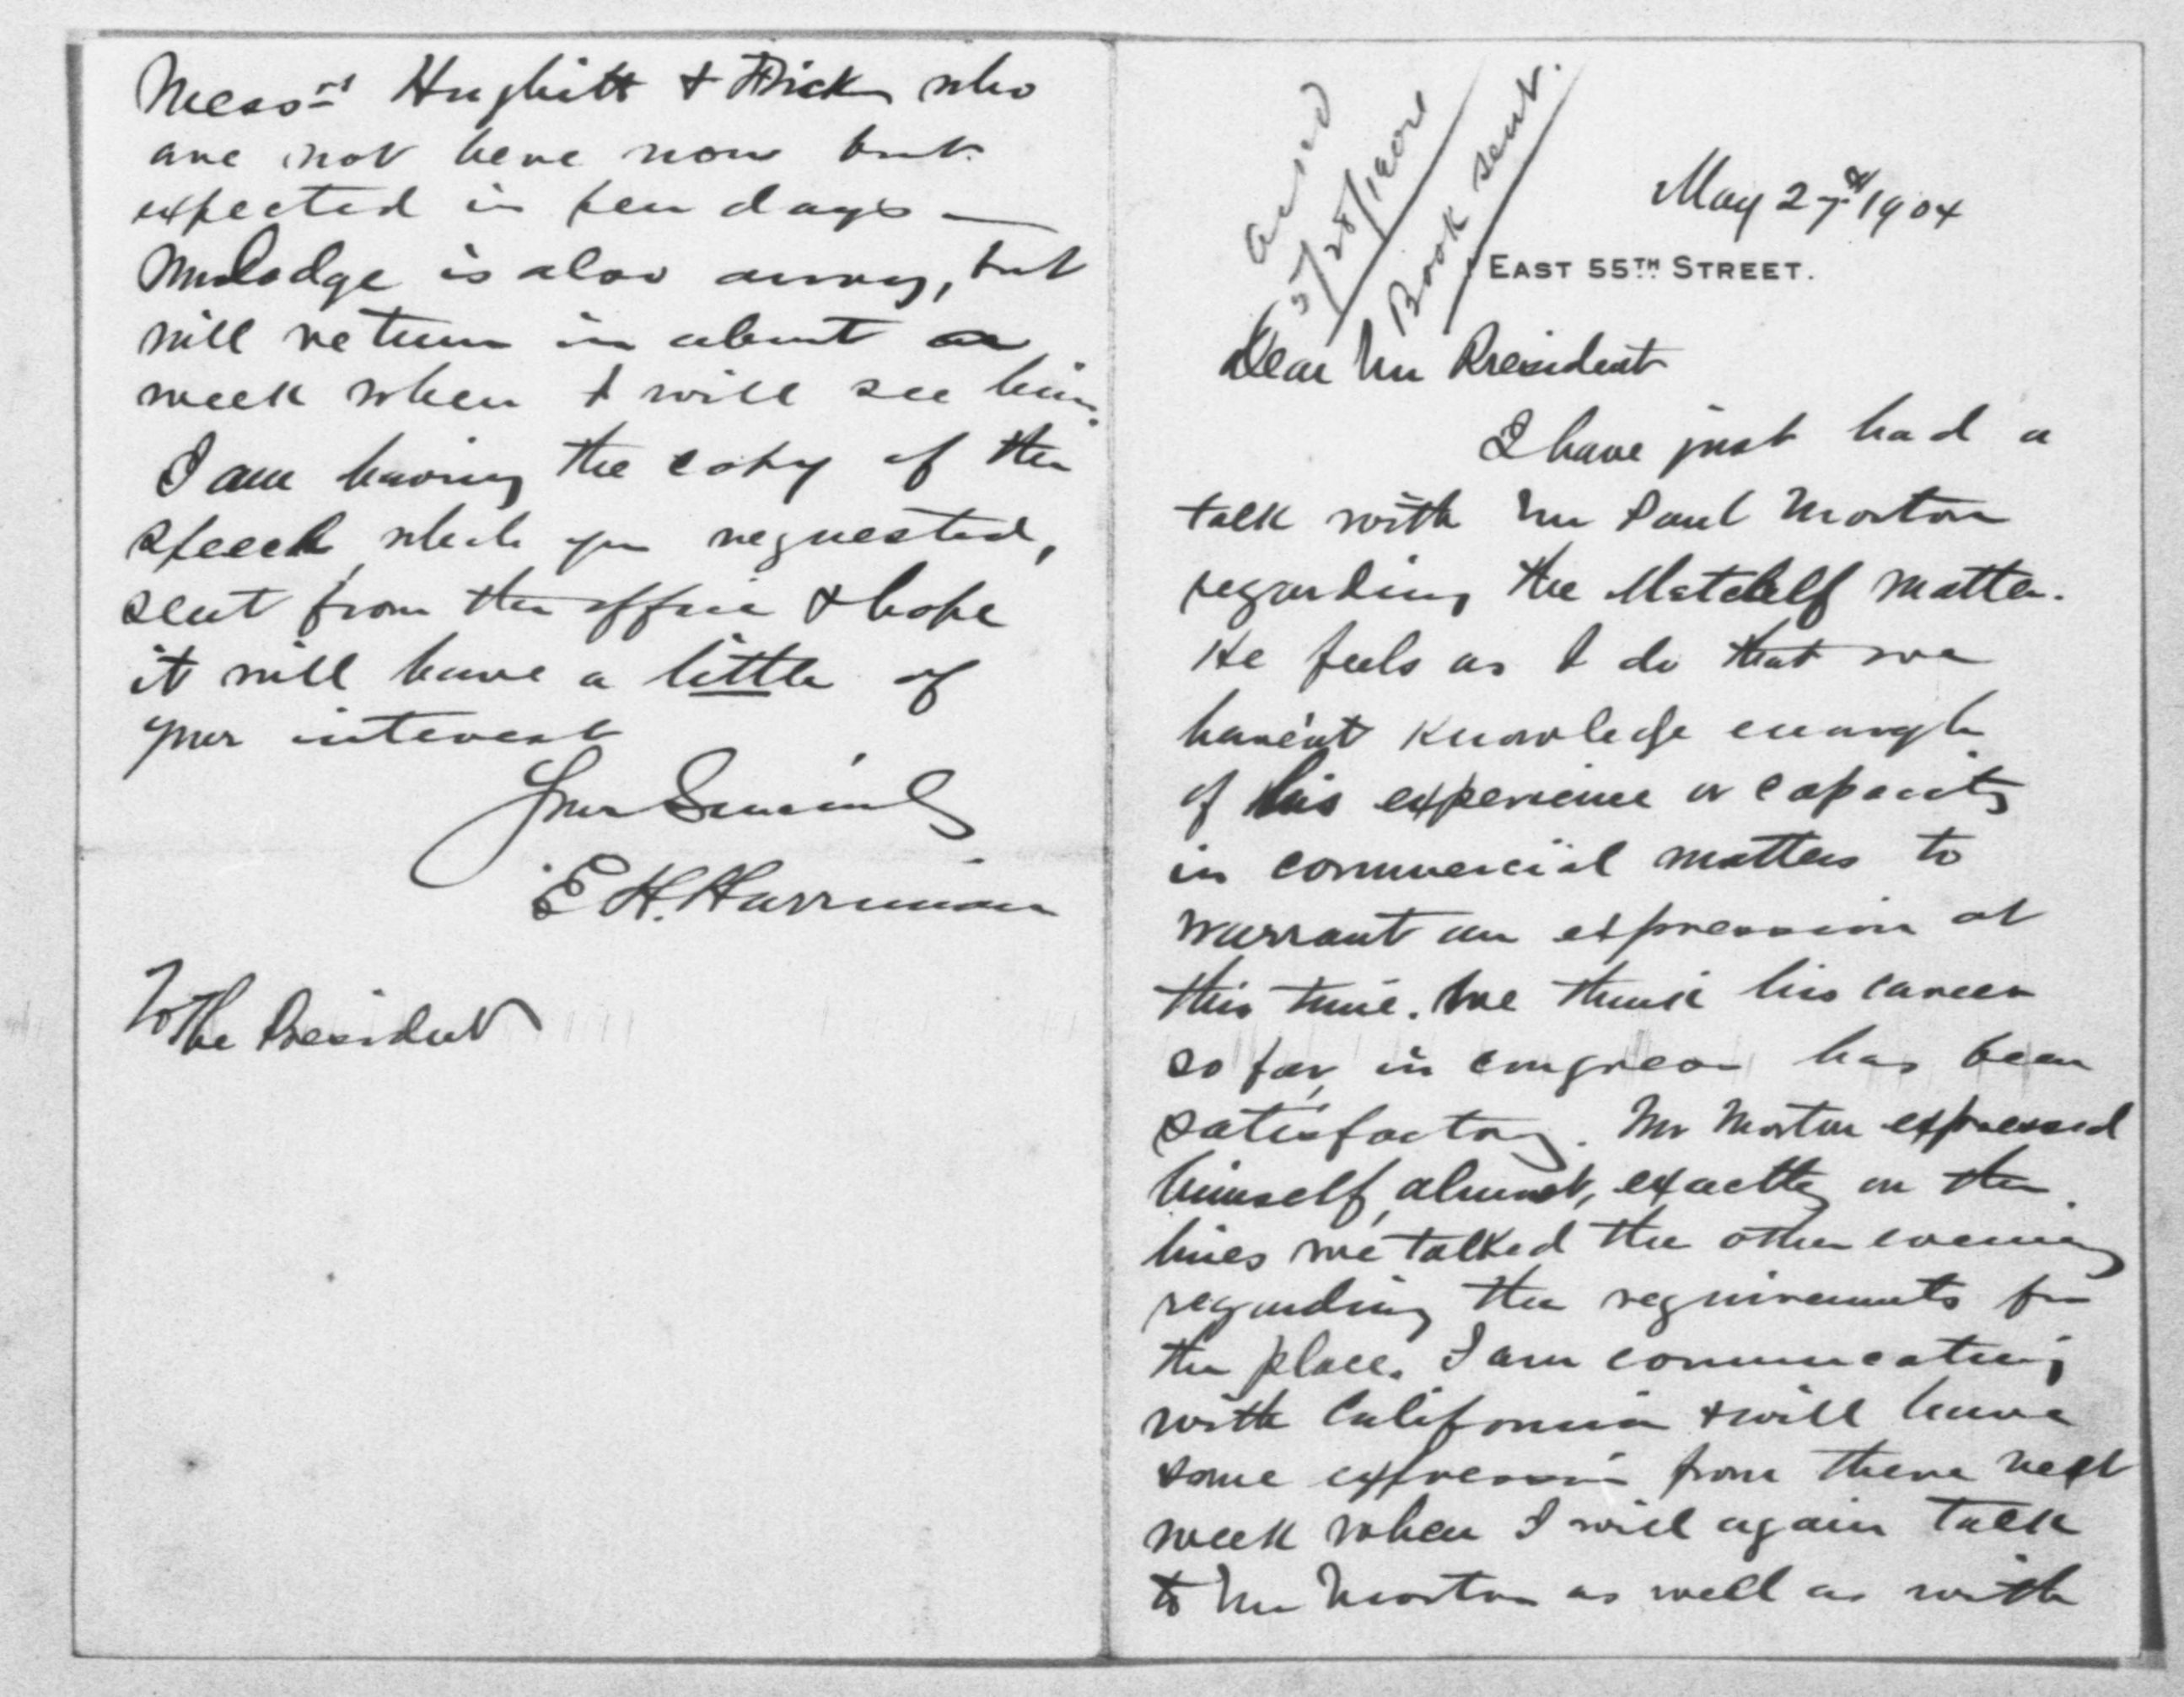 May 27th 1904
Ackd
5/28/1904
Book sent.
EAST 55TH STREET.
Dear Mr President
I have just had a
talk with Mr Paul Morton
regarding the Metcalf matter.
He feels as I do that we
haven't knowledge enough
of his experience or capacity
in commercial matters to
warrant an expression at
this time. We think his career
so far, in congress has been
satisfactory. Mr Morton expressed
himself, almost, exactly on the
lines we talked the other evening
regarding the requirements for
the place. I am communicating
with California & will have
some expression from there next
week when I will again talk
to Mr Morton as well as with
Messrs Hughitt & Frick who
are not here now but
expected in few days —
Mr Dodge is also away, but
will return in about a
week when I will see him.
I am having the copy of the
speech, which you requested,
sent from the office & hope
it will have a little of
your interest
Your Sincerely
E H. Harriman
To The President